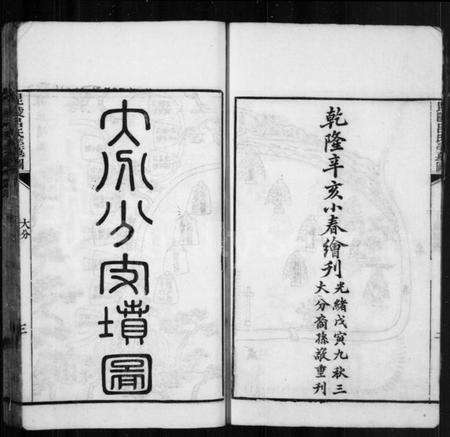 乾隆辛亥小春繪刊
光緒戊寅九秋三
大分裔孫敬重刊
大分支墳圖
大分
三